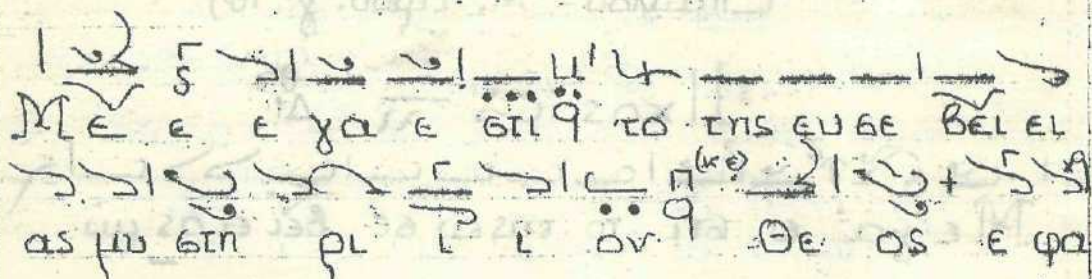 Μ ε ε ε γα ε στι το της ευ σε βει ει
ας μυ στη ρι ι ι ον (κε) Θε ος ε φα